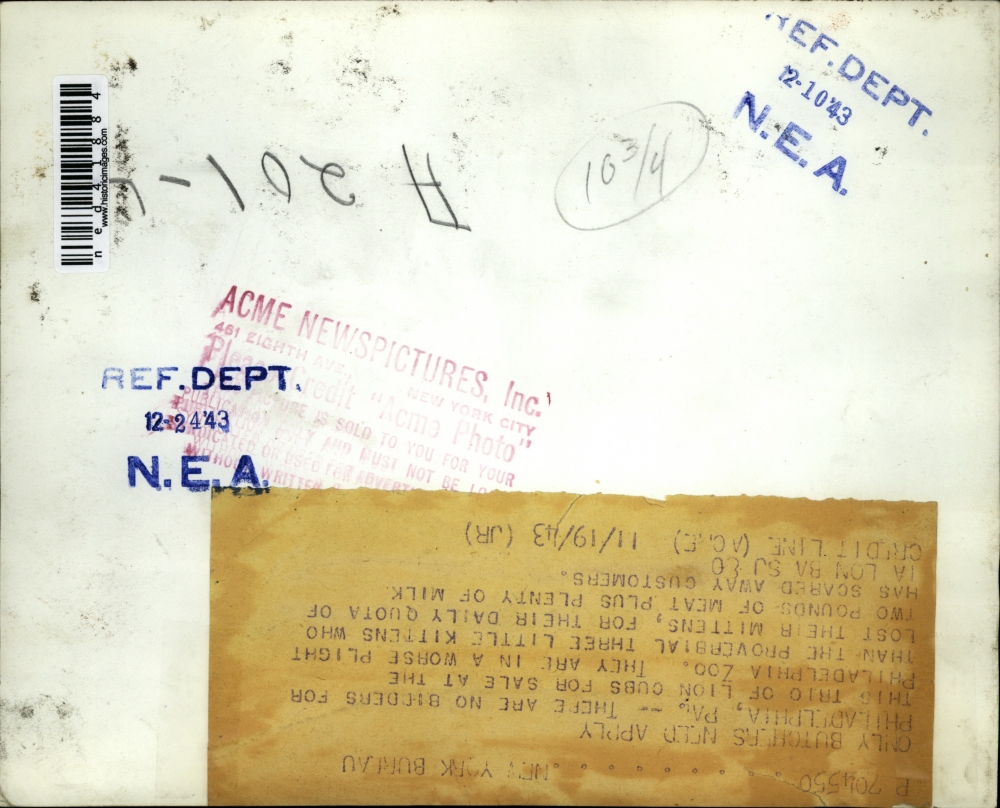 REF.DEPT.
12-10'43
N.E.A.
10 3/4
A 201-
ned418884
www.historicimages.com
ACME NEWSPICTURES, Inc.
461 EIGHTH AVE., NEW YORK CITY
Please Credit "Acme Photo"
PICTURE IS SOLD TO YOU FOR YOUR
PUBLICATION ONLY AND MUST NOT BE
SYNDICATED OR USED FOR
WITHOUT WRITTEN
REF.DEPT.
12-24'43
N.E.A.
P 704550 . . . . . . . . . NEW YORK BUREAU
ONLY BUTCHERS NEED APPLY
PHILADELPHIA, PA. -- THERE ARE NO BIDDERS FOR
THIS TRIO OF LION CUBS FOR SALE AT THE
PHILADELPHIA ZOO. THEY ARE IN A WORSE PLIGHT
THAN THE PROVERBIAL THREE LITTLE KITTENS WHO
LOST THEIR MITTENS, FOR THEIR DAILY QUOTA OF
TWO POUNDS OF MEAT PLUS PLENTY OF MILK
HAS SCARED AWAY CUSTOMERS.
1A LON BA SJ
CREDIT LINE (ACME) 11/19/43 (JR)